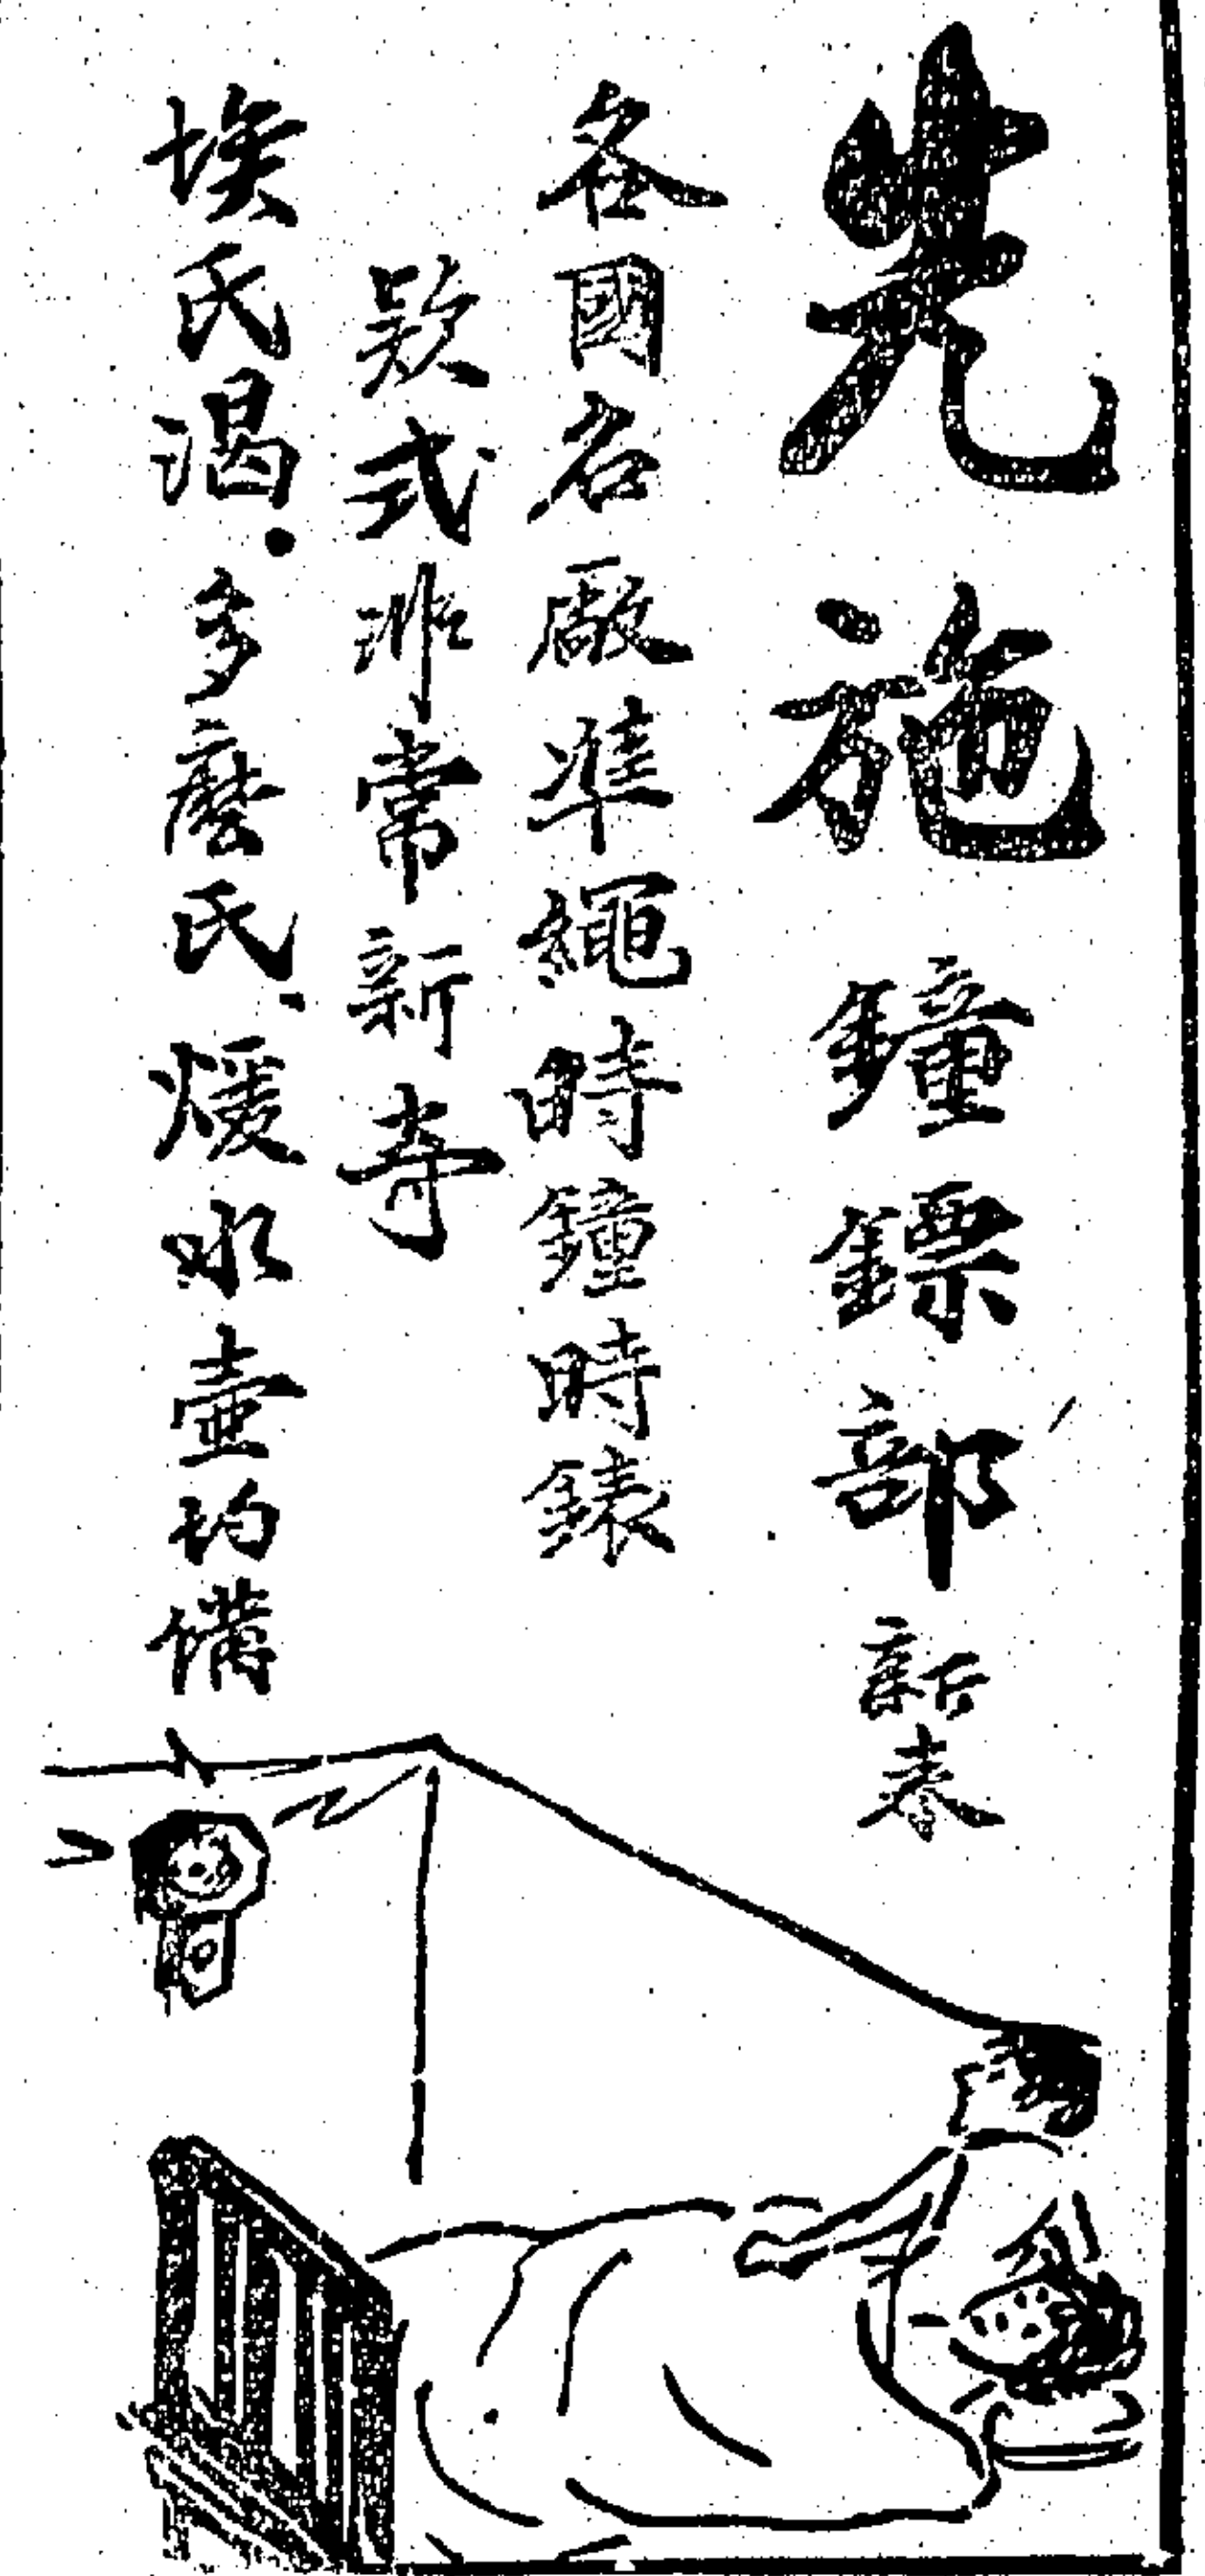 先施鐘鏢部
新春
各國名廠準繩時鐘時錶
款式非常新奇
埃氏渴．多麼氏．煖水壺均備